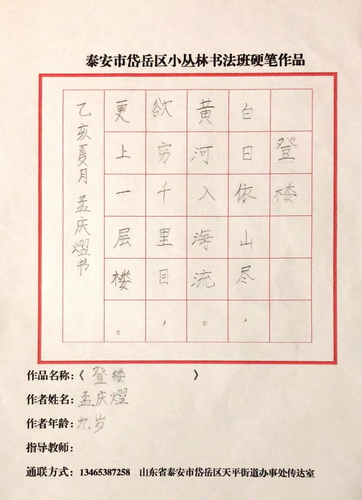 泰安市岱岳区小丛林书法班硬笔作品
登楼
白日依山尽，
黄河入海流。
欲穷千里目，
更上一层楼。
乙亥夏月孟庆熠书
作品名称：《登楼》
作者姓名：孟庆熠
作者年龄：九岁
指导教师：
通联方式：13465387258 山东省泰安市岱岳区天平街道办事处传达室